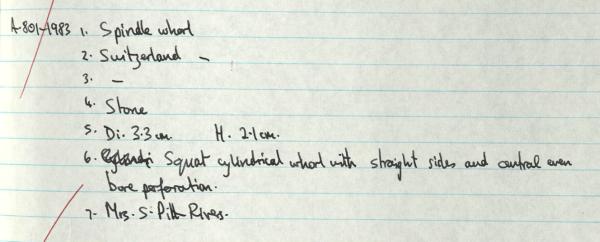 A-801-1983 1. Spindle whorl
2. Switzerland -
3. -
4. Stone
5. Di. 3.3 cm. H. 2.1 cm.
6. Squat cylindrical whorl with straight sides and central even
bore perforation.
7. Mrs. S. Pitt Rivers.